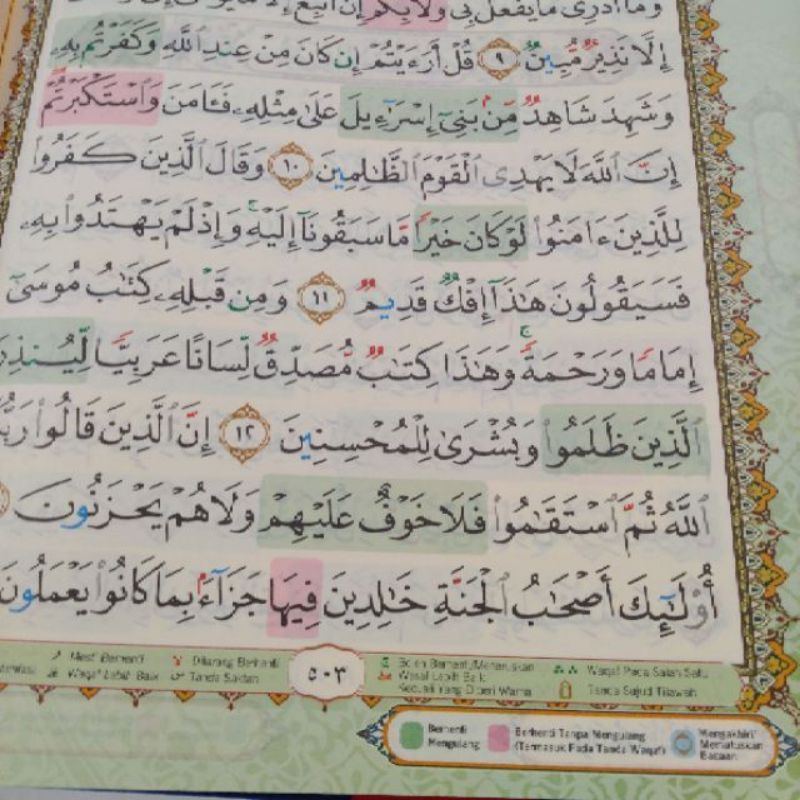 وَمَا أَدْرِى مَا يُفْعَلُ بِى وَلَا بِكُمْ إِنْ أَتَّبِعُ إِلَّا مَا يُوحَىٰ
إِلَّا نَذِيرٌ مُّبِينٌ ٩ قُلْ أَرَءَيْتُمْ إِن كَانَ مِنْ عِندِ ٱللَّهِ وَكَفَرْتُم بِهِۦ
وَشَهِدَ شَاهِدٌ مِّنۢ بَنِىٓ إِسْرَٰٓءِيلَ عَلَىٰ مِثْلِهِۦ فَـَٔامَنَ وَٱسْتَكْبَرْتُمْ
إِنَّ ٱللَّهَ لَا يَهْدِى ٱلْقَوْمَ ٱلظَّٰلِمِينَ ١٠ وَقَالَ ٱلَّذِينَ كَفَرُوا۟
لِلَّذِينَ ءَامَنُوا۟ لَوْ كَانَ خَيْرًا مَّا سَبَقُونَآ إِلَيْهِ ۚ وَإِذْ لَمْ يَهْتَدُوا۟ بِهِۦ
فَسَيَقُولُونَ هَٰذَآ إِفْكٌ قَدِيمٌ ١١ وَمِن قَبْلِهِۦ كِتَٰبُ مُوسَىٰٓ
إِمَامًا وَرَحْمَةً ۚ وَهَٰذَا كِتَٰبٌ مُّصَدِّقٌ لِّسَانًا عَرَبِيًّا لِّيُنذِرَ
ٱلَّذِينَ ظَلَمُوا۟ وَبُشْرَىٰ لِلْمُحْسِنِينَ ١٢ إِنَّ ٱلَّذِينَ قَالُوا۟ رَبُّ
ٱللَّهُ ثُمَّ ٱسْتَقَٰمُوا۟ فَلَا خَوْفٌ عَلَيْهِمْ وَلَا هُمْ يَحْزَنُونَ
أُو۟لَٰٓئِكَ أَصْحَٰبُ ٱلْجَنَّةِ خَٰلِدِينَ فِيهَا جَزَآءًۢ بِمَا كَانُوا۟ يَعْمَلُونَ
Mesti Berhenti
Waqaf Lebih Baik
Dilarang Berhenti
Tanda Saktah
٥٠٣
Boleh Berhenti/Meneruskan
Wasal Lebih Baik
Kecuali Yang Diberi Warna
Waqaf Pada Salah Satu
Tanda Sujud Tilawah
Berhenti
Mengulang
Berhenti Tanpa Mengulang
(Termasuk Pada Tanda Waqaf)
Mengakhiri/
Memutuskan
Bacaan